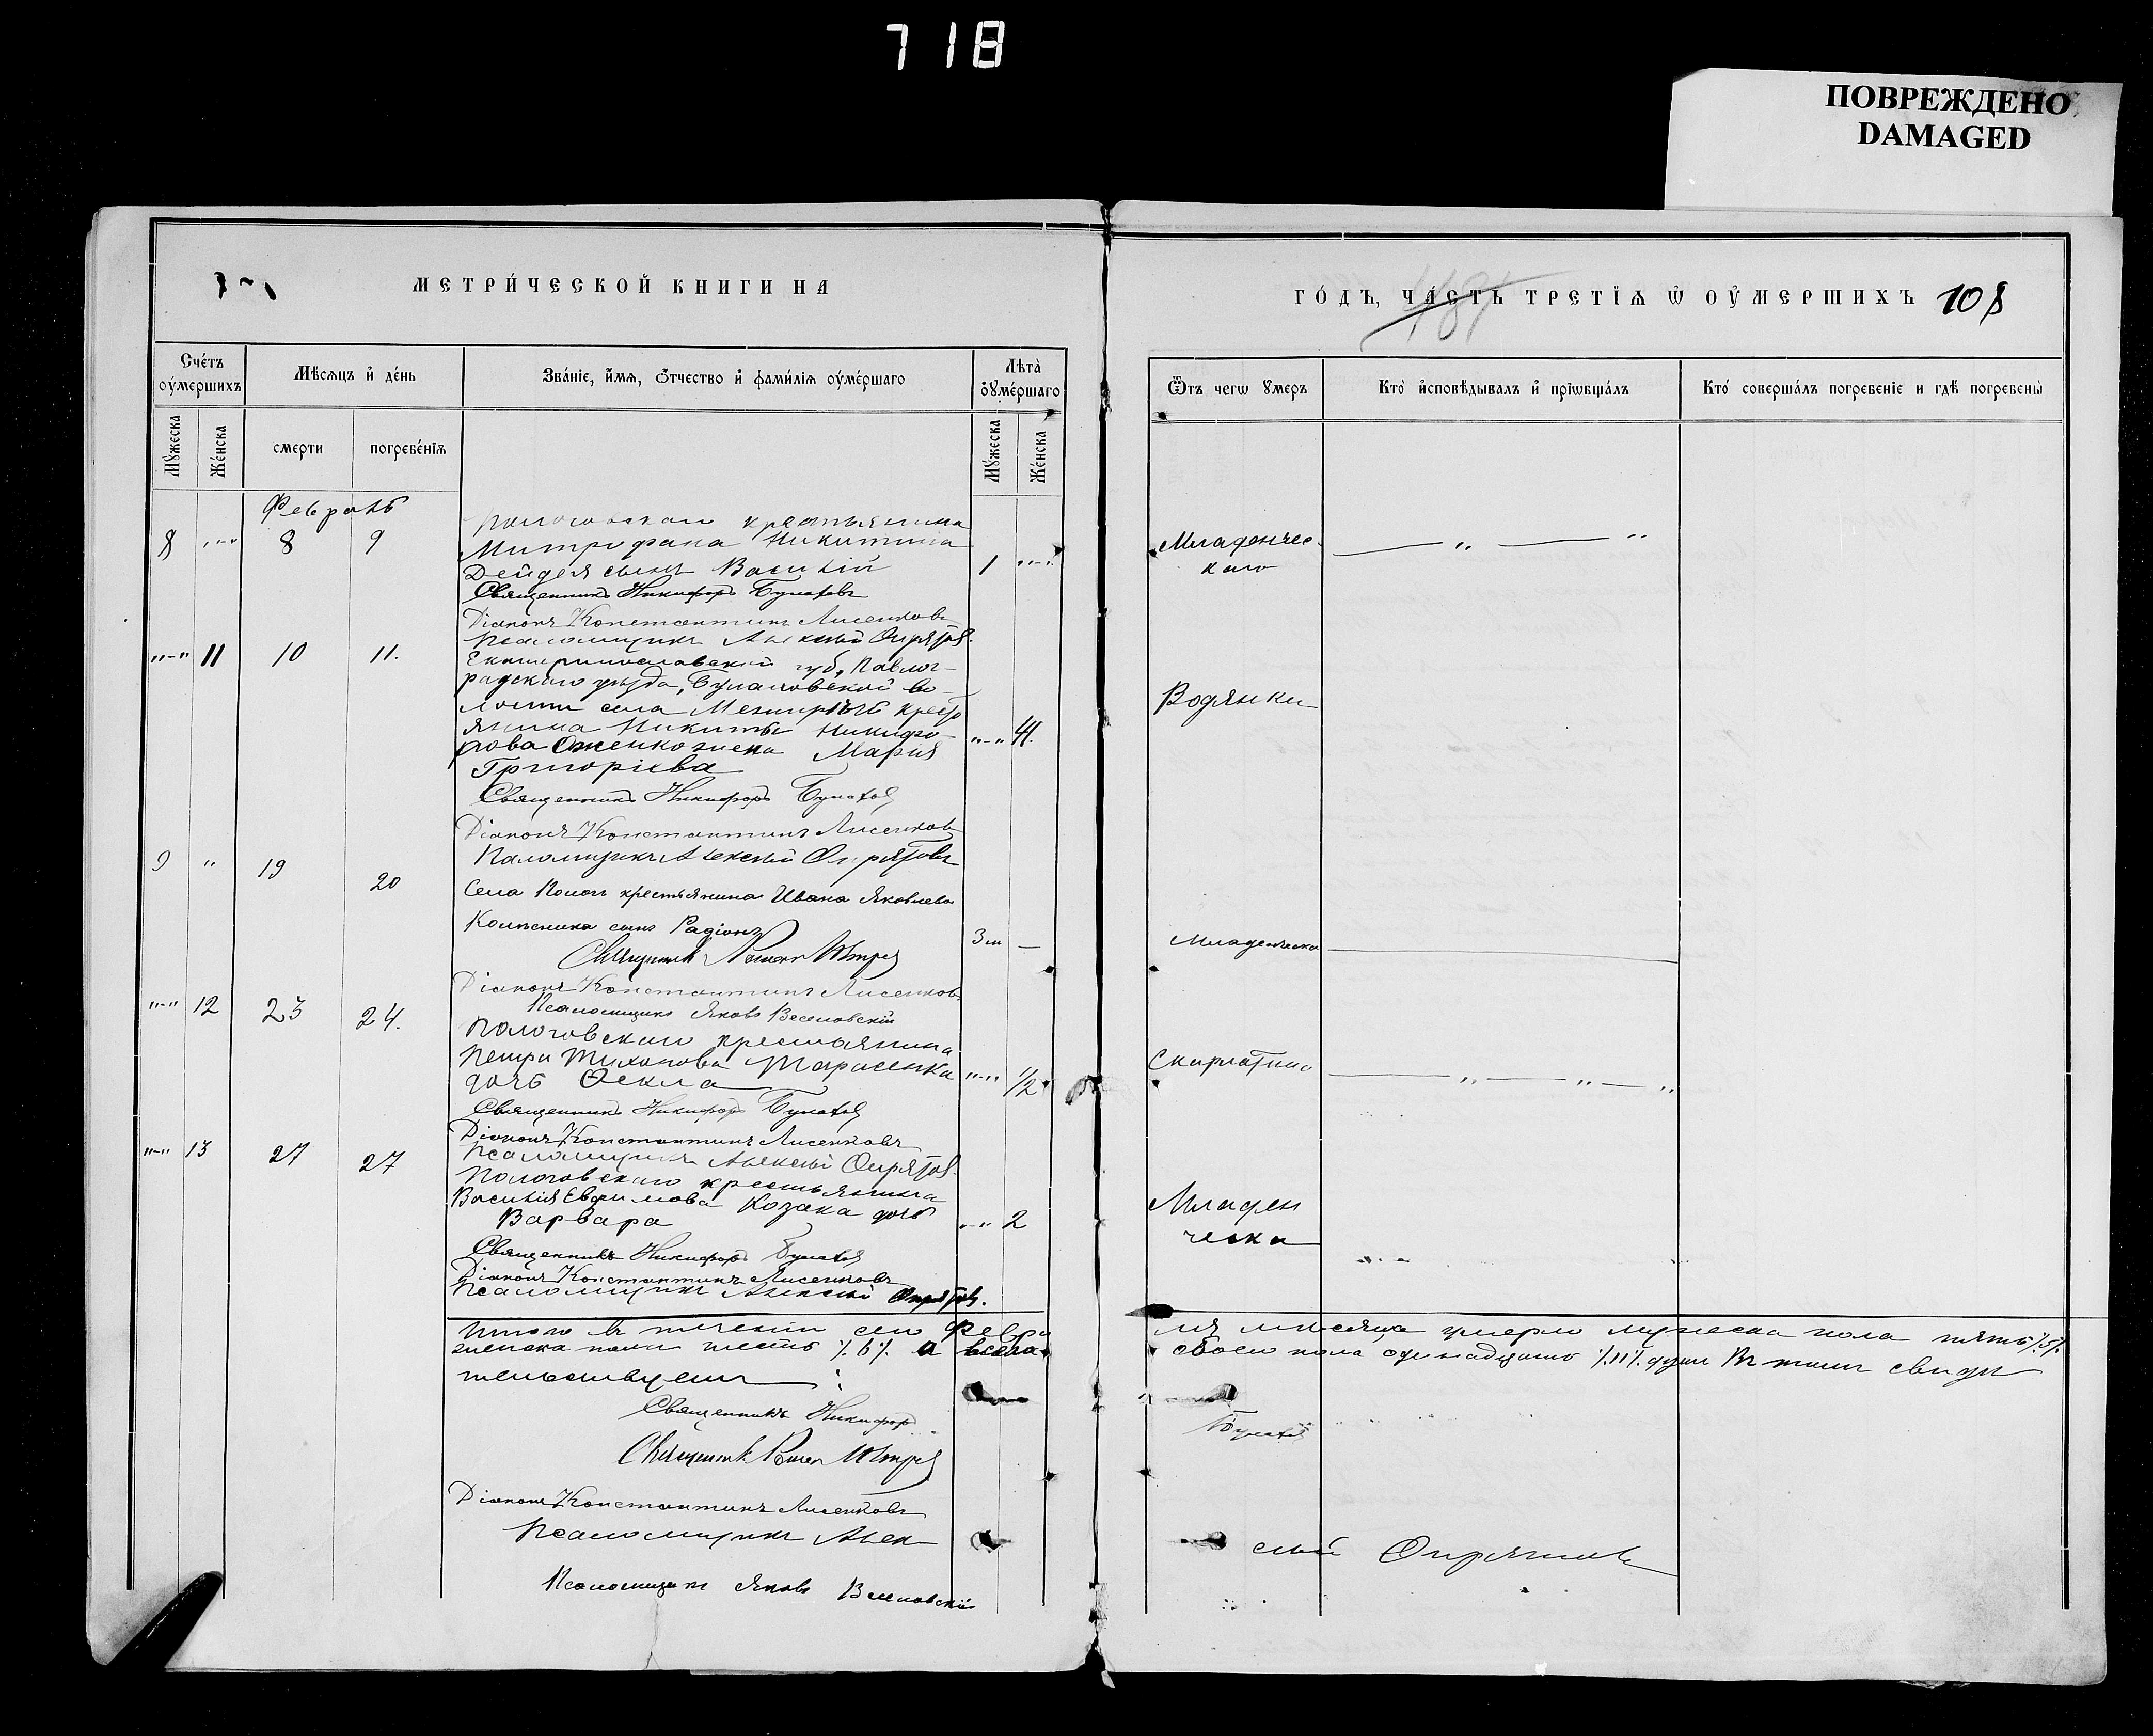 718
ПОВРЕЖДЕНО
DAMAGED
МЕТРИ́ЧЕСКОЙ КНИГИ НА
ГО́ДЪ, ЧА́СТЬ ТРЕТІѦ Ѡ ОУ҆МЕРШИХЪ 108
481
Сче́тъ оу҆ме́ршихъ
Мѣ́сѧцъ и҆ де́нь
Зва́нїе, и҆́мѧ, ѻ҆́тчество и҆ фами́лїѧ оу҆ме́ршаго
Лѣ́та оу҆ме́ршаго
Ѿ чегѡ̀ у҆́меръ
Кто̀ и҆сповѣ́дывалъ и҆ прїѡбща́лъ
Кто̀ соверша́лъ погребе́нїе и гдѣ̀ погребены̀
Мꙋ́жеска
Же́нска
смерти
погребе́нїѧ
Мꙋ́жеска
Же́нска
Февраль
8 "-" 8 9
Пологовскаго крестьянина
Митрофана Никитина
Дейделя сынъ Василій
1 "-"
Младенчес-
каго
Священникъ Никифоръ Булатовъ
Діаконъ Константинъ Лисенковъ
Псаломщикъ Алексѣй Опрятов
"-" 11 10 11.
Екатеринославской губ, Павлог-
радскаго уѣзда, Булаховской во-
лости села Межиричь крест
янина Никиты Никифо-
рова жена Марія
Григоріева
"-"
Водянки
Священникъ Никифоръ Булатов
Діаконъ Константинъ Лисенковъ
Псаломщикъ Алексѣй Опрятовъ
9 " 19 20
Села Пологъ крестьянина Ивана Яковлева
Колесника сынъ Радіонъ
3 м —
Младенческа
Священникъ
Діаконъ Константинъ Лисенковъ
Псаломщикъ Яковъ Веселовскій
"-" 12 23 24.
Пологовскаго крестьянина
Петра Тихонова Тарасенка
дочь Ѳекла
"-" 1/2
Скарлатина
Священникъ Никифоръ Булатов
Діаконъ Константинъ Лисенковъ
Псаломщикъ Алексѣй Опрятов
"-" 13 27 27
Пологовскаго крестьянина
Василія Евфимова Козака дочь
Варвара
"-" 2
Младен
ческа
Священникъ Никифоръ Булатов
Діаконъ Константинъ Лисенковъ
Псаломщикъ Алексѣй Опрятов.
Итого въ теченіи сего Февра
ля мѣсяца умерло мужеска пола пять /.5/.
женска пола шесть /.6/. а всего
обоего пола одинадцать /.11/. душъ Въ томъ свидѣ
тельствуемъ:
Священникъ Никифор
Булатов
Священникъ
Діаконъ Константинъ Лисенковъ
Псаломщикъ Алек
сѣй Опрятовъ
Псаломщикъ Яковъ Веселовскій